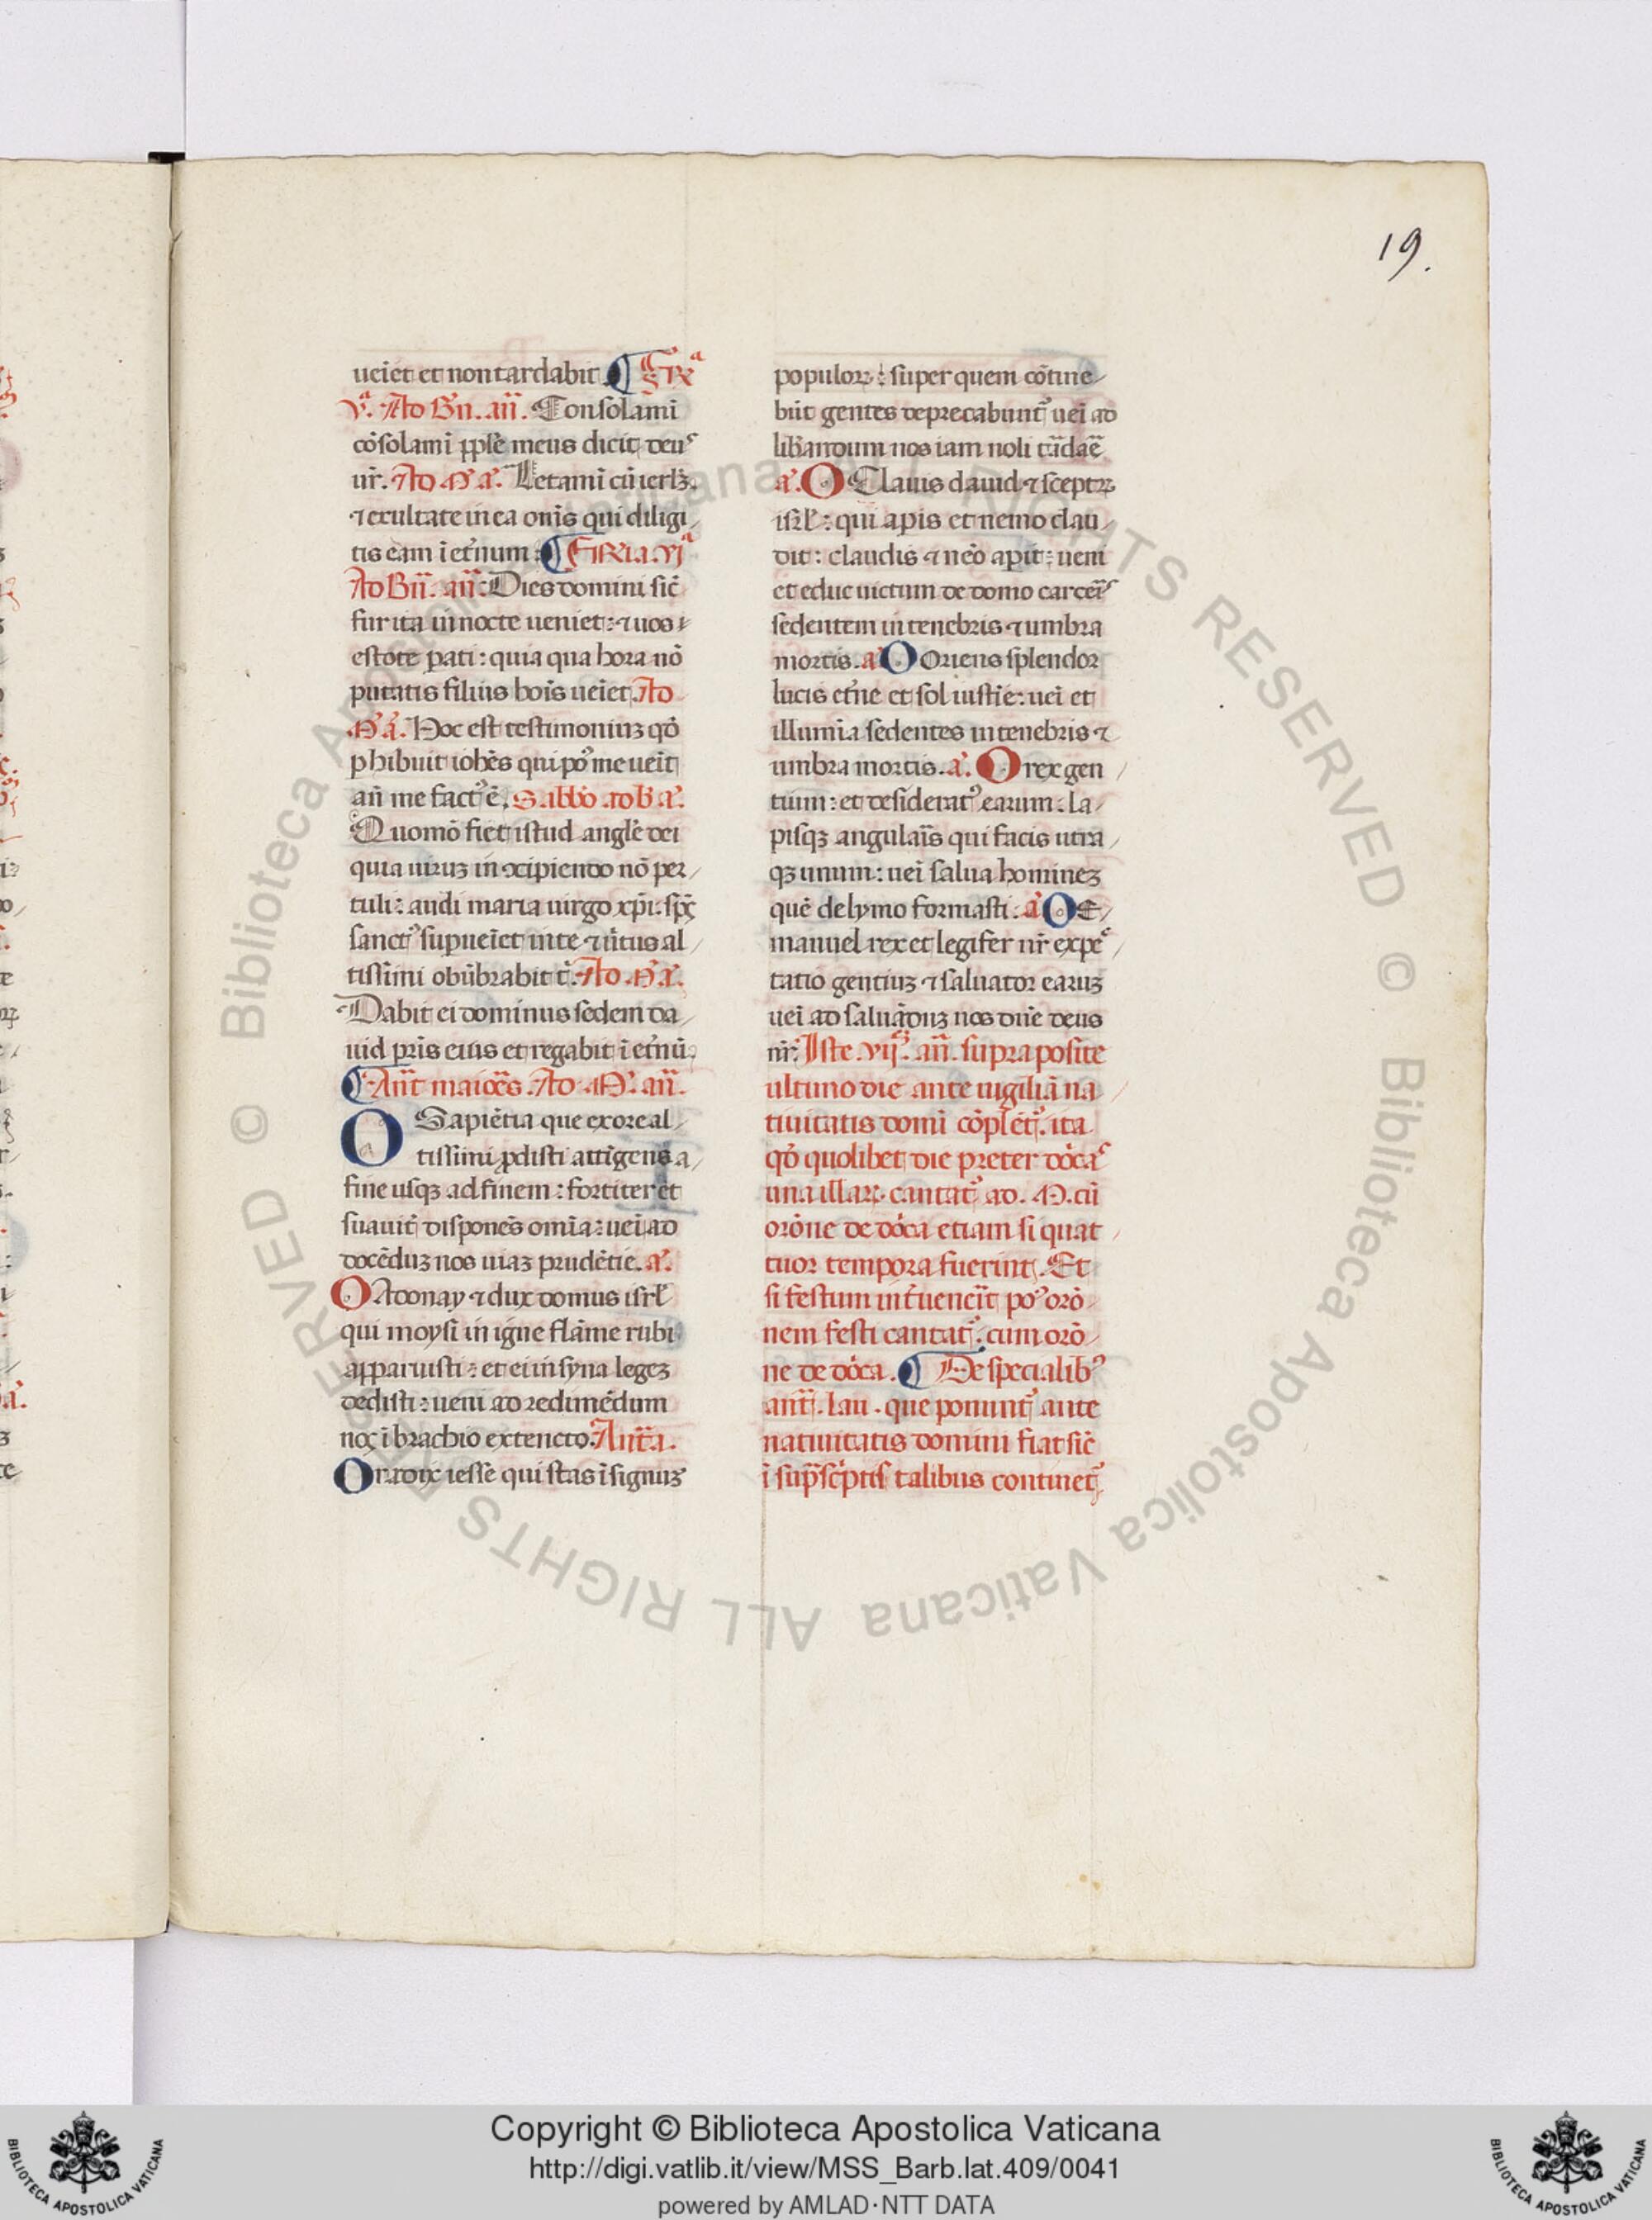 19.
ueiet et non tardabit. ¶ Fr̃ia
v.ª Ad Bñ. añ. Consolamĩ
cõsolamĩ ppl̃e meus dicit deus
ur̃. Ad .M. a. Letamĩ cũ ierl̃ꝫ.
⁊ exultate in ea om̃s qui diligi,
tis eam ĩ et̃num: ¶ FERIA. vjª
Ad Bñ. añ. Dies domini sic̃
fur ita in nocte ueniet: ⁊ uos
estote p̱ati: quia qua hora nõ
putatis filius hoĩs ueĩet. Ad
M. a. Hoc est testimoniuꝫ qð
phibuit ioh̃es qui poꝰ me ueĩt
añ me factꝰ ẽ. Sabbõ ad b. a.
Quomõ fiet istud angl̃e dei
quia uiruꝫ in ↄcipiendo nõ per,
tuli: audi maria uirgo xp̃i: sp̃s
sanctꝰ sup̱ueĩet in te ⁊ ũtus al,
tissimi obũbrabit t̃. Ad .M. a.
Dabit ei dominus sedem da,
uid pr̃is eius et regabit ĩ et̃nũ.
¶ Añt maiões. Ad .M. añ.
O Sapiẽtia que ex ore al,
tissimi ꝓdisti attigens a,
fine usqꝫ ad finem: fortiter et
suauit̃ disponẽs om̃ia: ueĩ ad
docẽduꝫ nos uiaꝫ prudẽtie. a.
O Adonay ⁊ dux domus isrl̃
qui moysi in igne flãme rubi
apparuisti: et ei in syna legeꝫ
dedisti: ueni ad redimẽdum
nos ĩ brachio extencto. Añt̃a.
O radix iesse qui stas ĩ signuꝫ
populoꝝ: super quem cõtine,
bũt gentes deprecabunt̃ ueĩ ad
lib̃andum nos iam noli tãdaẽ
a. O Clauis dauid ⁊ sceptꝝ
isrl̃: qui ap̱is et nemo clau,
dit: claudis ⁊ nẽo ap̱it: ueni
et educ uictum de domo carceĩs
sedentem in tenebris ⁊ umbra
mortis. a. O Oriens splendor
lucis et̃ne et sol iustĩe: ueĩ et
illumĩa sedentes in tenebris ⁊
umbra mortis. a. O rex gen,
tium: et desideratꝰ earum: la,
pisqꝫ angulaĩs qui facis utra,
qꝫ unum: ueĩ salua homineꝫ
quẽ de lymo formasti. a. O E,
manuel rex et legifer nr̃ expec,
tatio gentiuꝫ ⁊ saluator earuꝫ
ueĩ ad saluãduꝫ nos dñe deus
nr̃. Iste .vij. añ. supra posite
ultimo die ante uigiliã na,
tiuitatis domĩ cõplẽt̃. ita
qð quolibet die preter dõcas
una illaꝝ. cantat̃ ad .M. cũ
orõne de dõca etiam si quat,
tuor tempora fuerint. Et
si festum int̃uenẽĩt poꝰ orõ,
nem festi cantat̃. cum orõ,
ne de dõca. ¶ De specialibꝰ
añt̃. lau. que ponunt̃ ante
natiuitatis domini fiat sic̃
ĩ sup̃sc̃ptis talibus continet̃.
© Biblioteca Apostolica Vaticana ALL RIGHTS RESERVED © Biblioteca Apostolica Vaticana ALL RIGHTS RESERVED
BIBLIOTECA APOSTOLICA VATICANA
Copyright © Biblioteca Apostolica Vaticana
http://digi.vatlib.it/view/MSS_Barb.lat.409/0041
powered by AMLAD·NTT DATA
BIBLIOTECA APOSTOLICA VATICANA